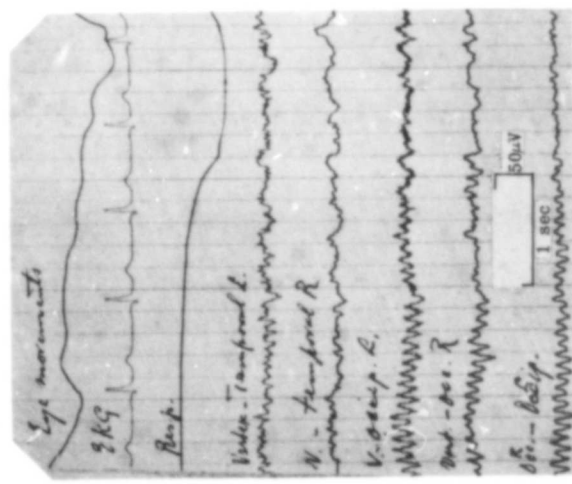 Eye movements
EKG
Resp.
Vertex-Temporal L.
V. - temporal R
V-occip. L.
occ. R
50μV
1 sec